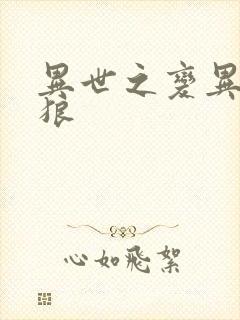 異世之變異
狼
心如飛絮